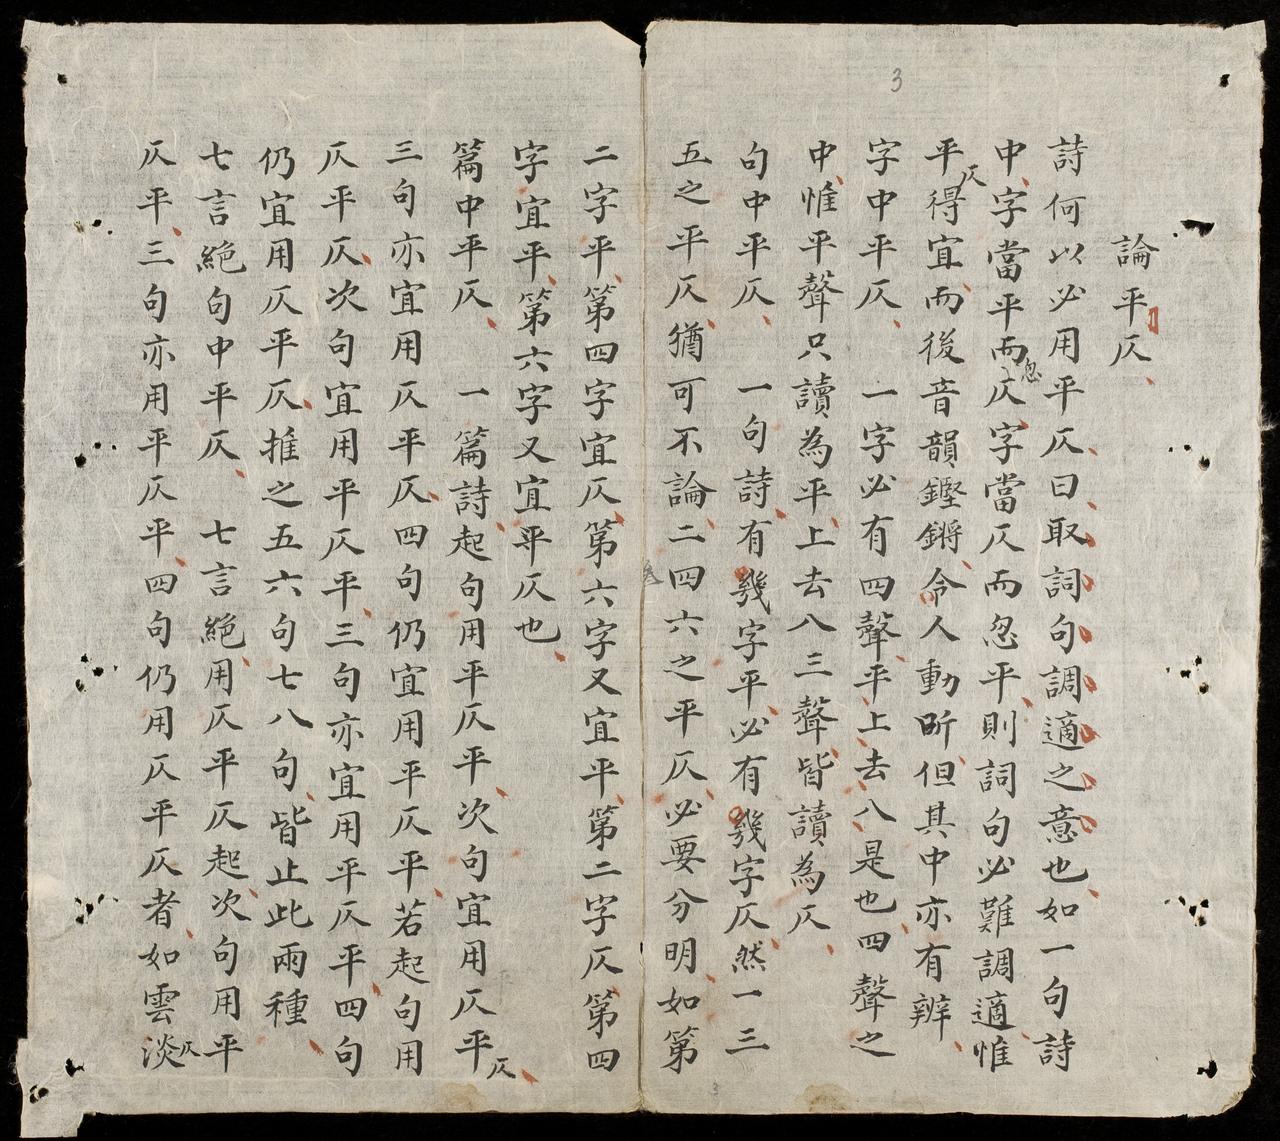 3
論平仄
詩何以必用平仄曰取詞句調適之意也如一句詩
中字當平而忽仄字當仄而忽平則詞句必難調適惟
平仄得宜而後音韻鏗鏘令人動听但其中亦有辨
字中平仄　一字必有四聲平上去八是也四聲之
中惟平聲只讀為平上去八三聲皆讀為仄
句中平仄　一句詩有幾字平必有幾字仄然一三
五之平仄猶可不論二四六之平仄必要分明如第
二字平第四字宜仄第六字又宜平第二字仄第四
字宜平第六字又宜平仄也
篇中平仄　一篇詩起句用平仄平次句宜用仄平仄
三句亦宜用仄平仄四句仍宜用平仄平若起句用
仄平仄次句宜用平仄平三句亦宜用平仄平四句
仍宜用仄平仄推之五六句七八句皆止此兩種
七言絕句中平仄　七言絕用仄平仄起次句用平
仄平三句亦用平仄平四句仍用仄平仄者如雲淡
仄
3